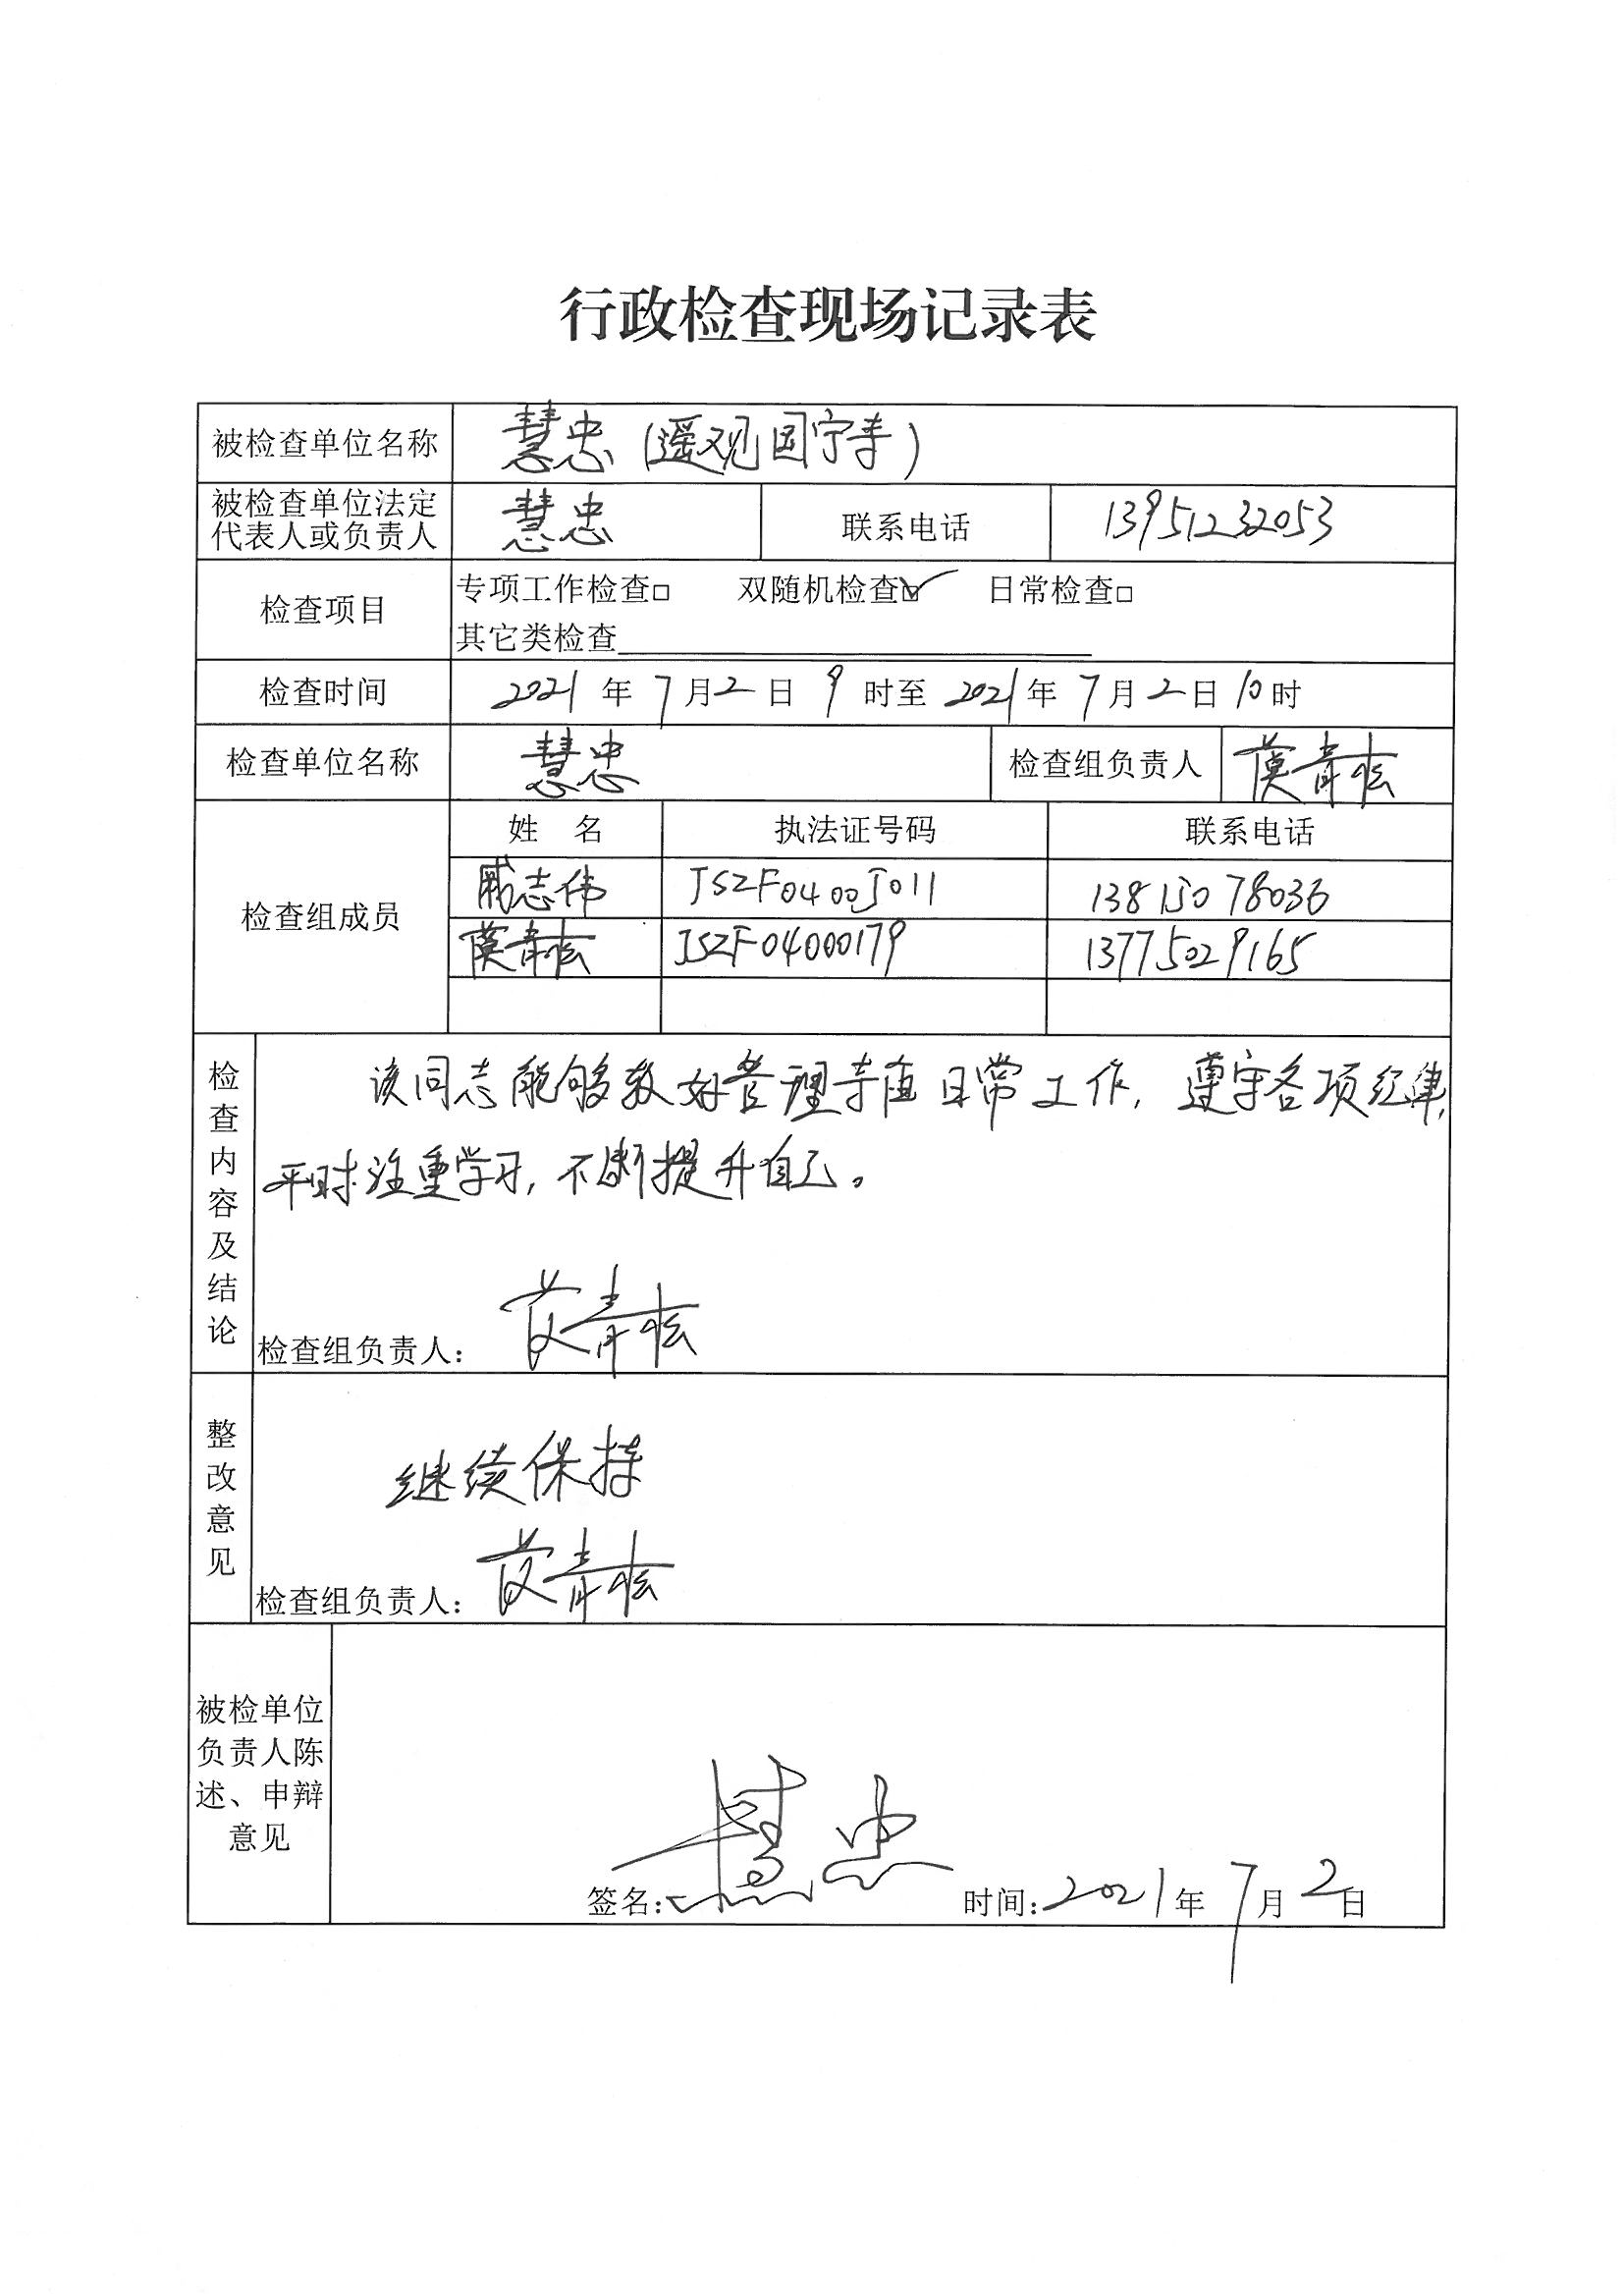 行政检查现场记录表
被检查单位名称 慧忠(遥观国宁寺)
被检查单位法定代表人或负责人 慧忠 联系电话 13951232053
检查项目 专项工作检查□ 双随机检查☑ 日常检查□
其它类检查
检查时间 2021年7月2日9时至2021年7月2日10时
检查单位名称 慧忠 检查组负责人 青松
检查组成员 姓 名 执法证号码 联系电话
戚志伟 JSZF04005011 13815078036
青松 JSZF04000179 13775029165
检查内容及结论
该同志能够较好管理寺庙日常工作,遵守各项纪律,
平时注重学习,不断提升自己。
检查组负责人: 青松
整改意见
继续保持
检查组负责人: 青松
被检单位负责人陈述、申辩意见
签名: 慧忠 时间: 2021年7月2日